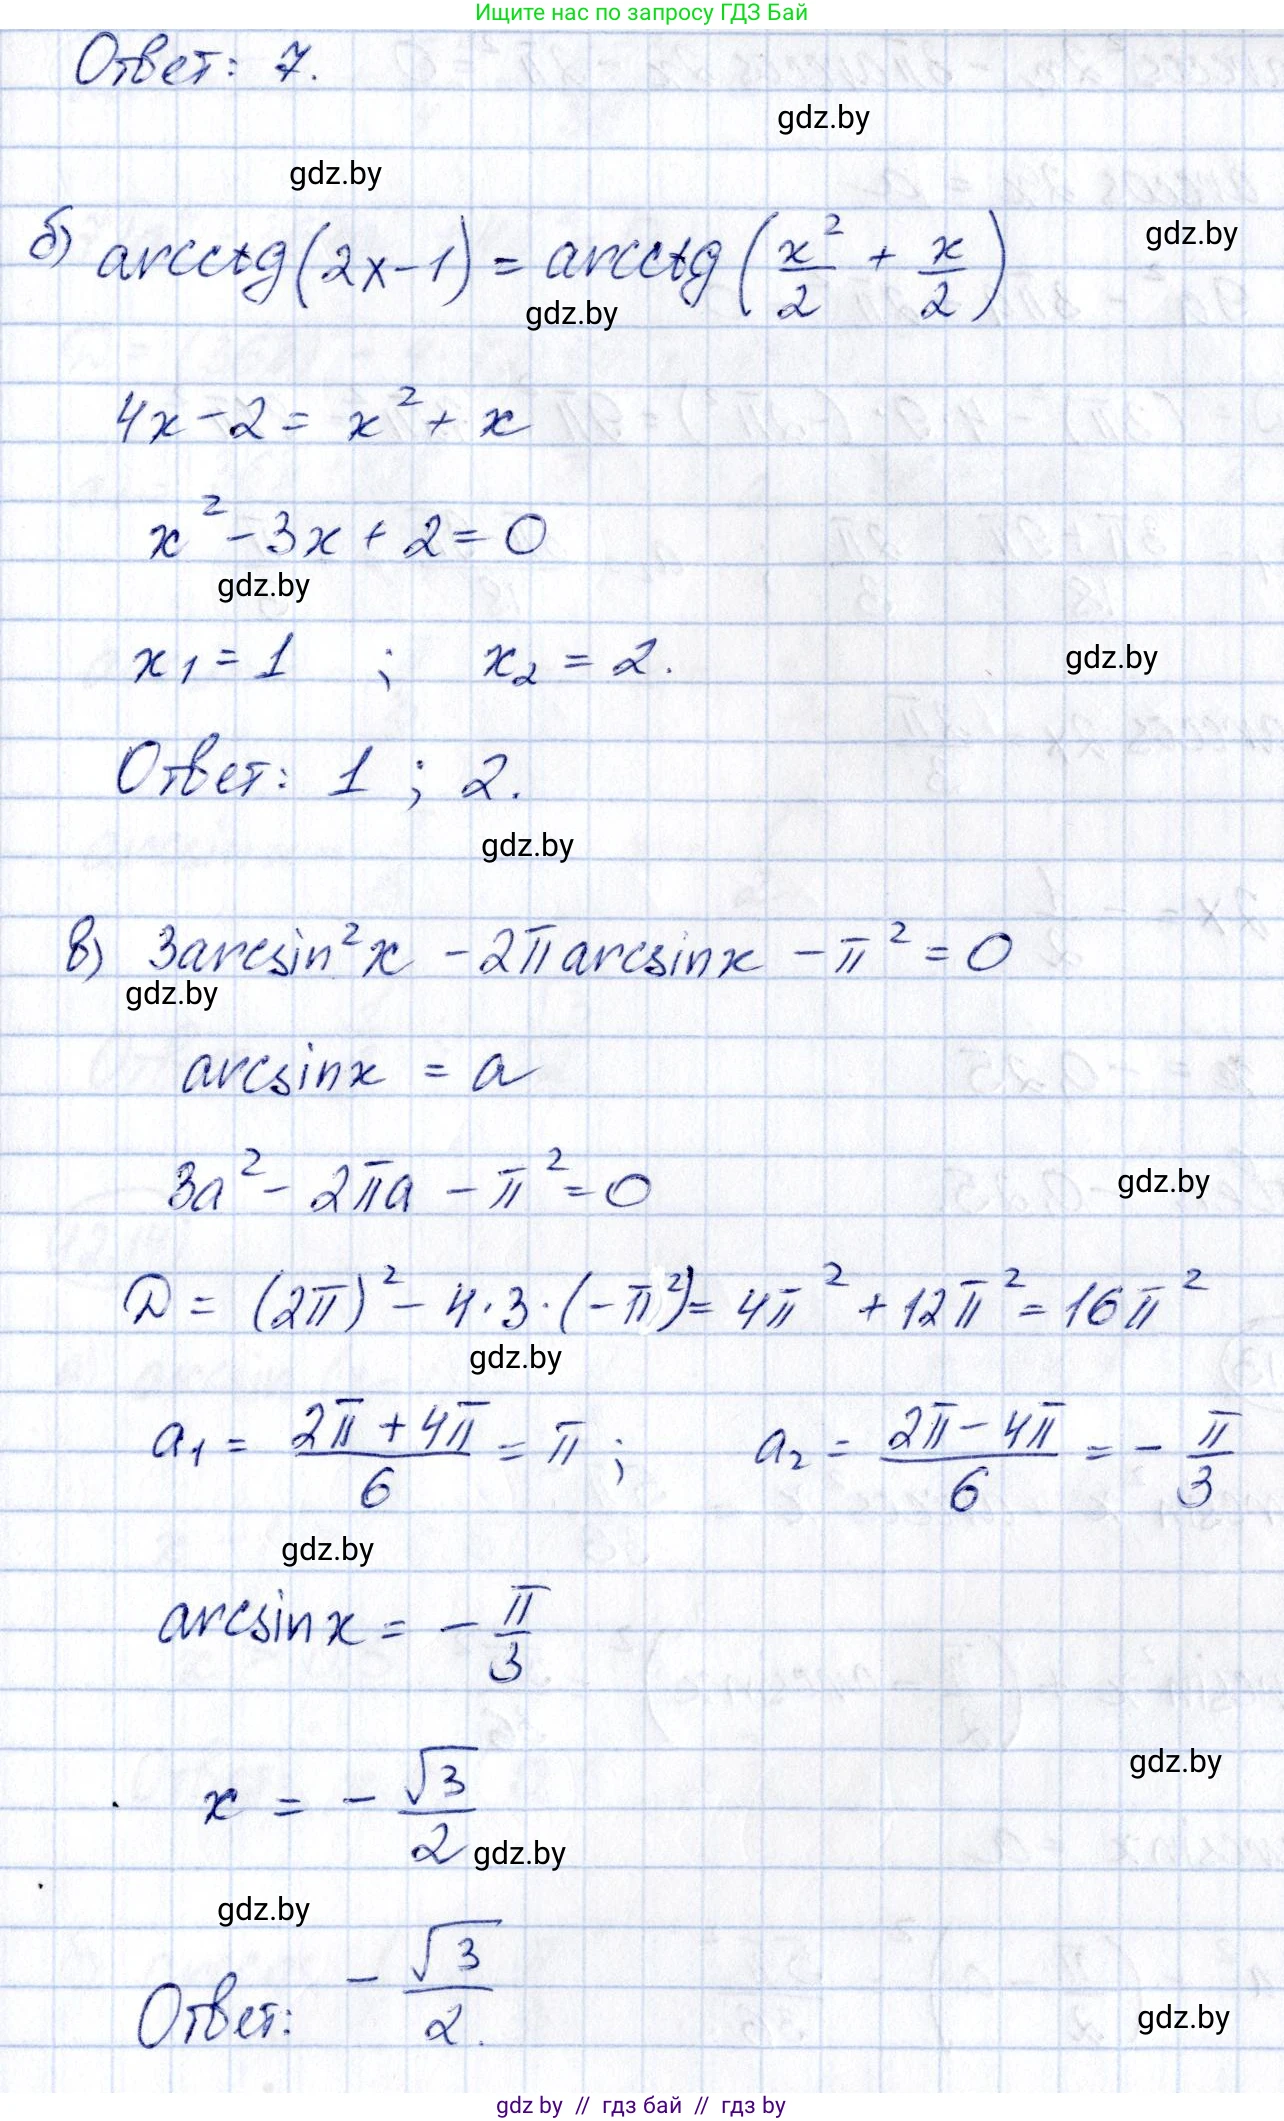 Ищите нас по запросу ГДЗ Бай
Ответ: 7.
gdz.by
gdz.by
б) arcctg(2x-1) = arcctg(x²/2 + x/2)
gdz.by
gdz.by
4x-2 = x² + x
x² - 3x + 2 = 0
gdz.by
x₁ = 1 ; x₂ = 2.
gdz.by
Ответ: 1 ; 2.
gdz.by
в) 3arcsin²x - 2π arcsinx - π² = 0
gdz.by
arcsinx = a
3a² - 2πa - π² = 0
gdz.by
D = (2π)² - 4·3·(-π²) = 4π² + 12π² = 16π²
gdz.by
a₁ = (2π + 4π)/6 = π ; a₂ = (2π - 4π)/6 = - π/3
gdz.by
arcsinx = - π/3
gdz.by
x = - √3/2
gdz.by
gdz.by
Ответ: - √3/2.
gdz.by
gdz by // гдз бай // гдз by